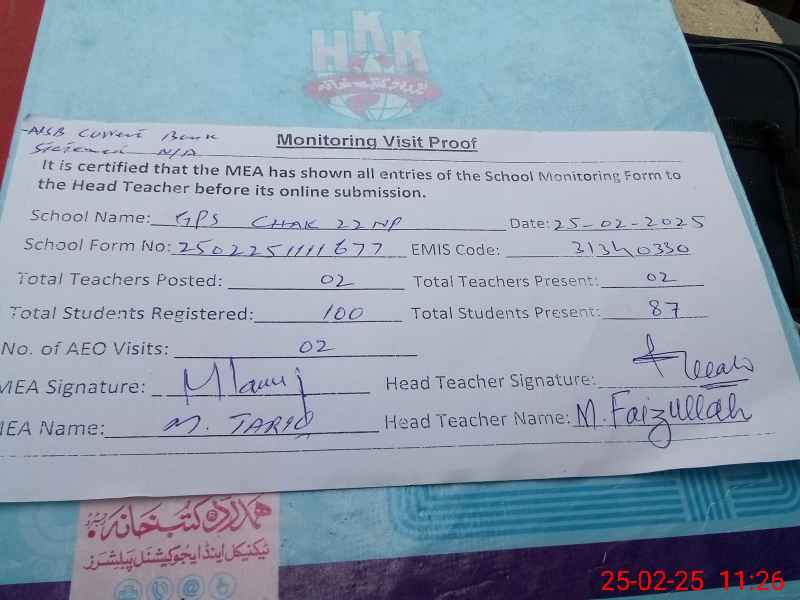 HKK
ہمدرد کتب خانہ
-NSB Current Bank
Statement N/A
Monitoring Visit Proof
It is certified that the MEA has shown all entries of the School Monitoring Form to
the Head Teacher before its online submission.
School Name: GPS CHAK 22 NP Date: 25-02-2025
School Form No: 2502251111677 EMIS Code: 31340330
Total Teachers Posted: 02 Total Teachers Present: 02
Total Students Registered: 100 Total Students Present: 87
No. of AEO Visits: 02
MEA Signature: Head Teacher Signature:
MEA Name: M. TARIQ Head Teacher Name: M. Faizullah
ہمدرد کتب خانہ
ٹیکنیکل اینڈ ایجوکیشنل پبلیشرز
25-02-25 11:26